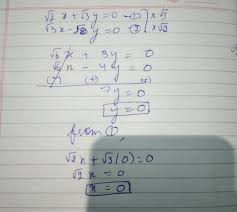 √2 x + √3 y = 0 —① ] × √3
√3 x − √8 y = 0 —② ] × √2
√6 x + 3y = 0
√6 x − 4y = 0
(-) (+) (-)
7y = 0
y = 0
from ①,
√2 x + √3 (0) = 0
√2 x = 0
x = 0